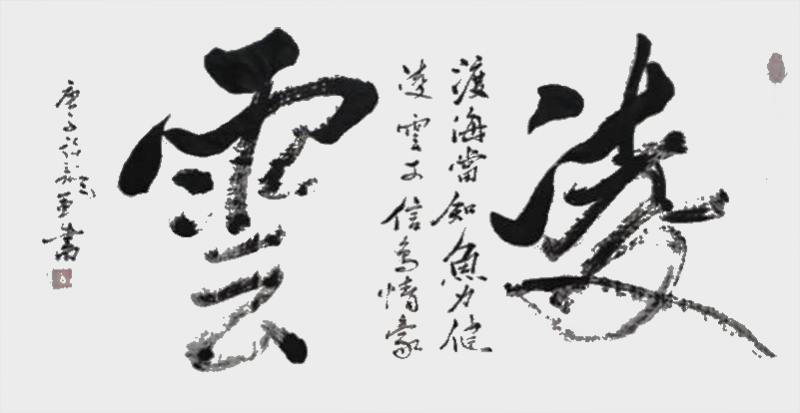 凌
渡海當知魚力健
凌雲才信鳥情豪
雲
庚子書